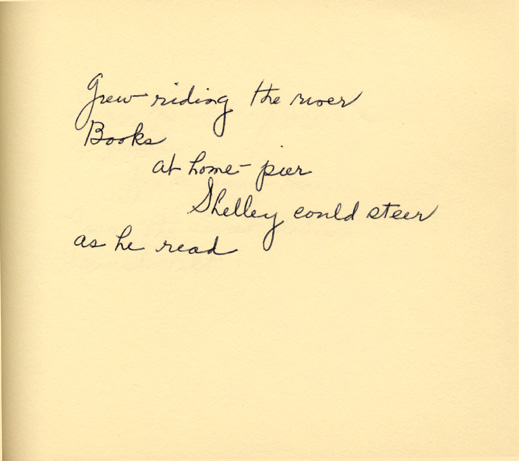 Grew riding the river
Books
at home-pier
Shelley could steer
as he read